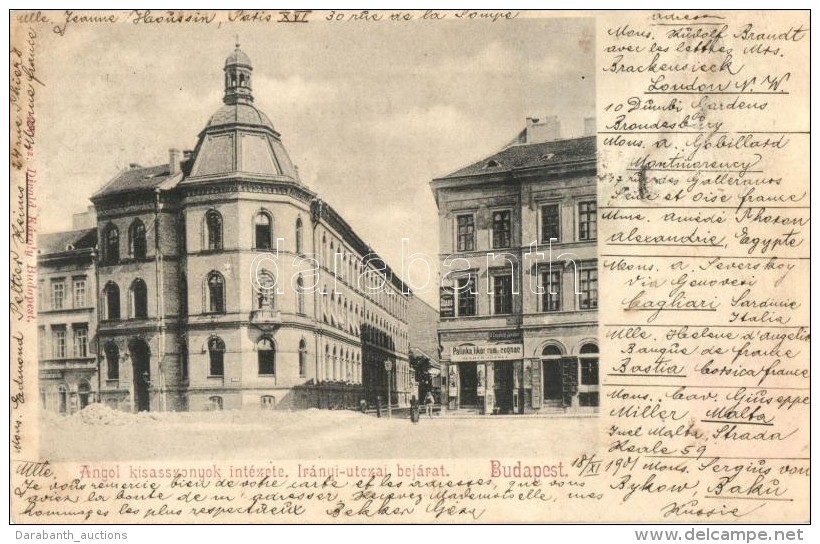 Mlle. Jeanne Haoussin, Paris XVI 30 rue de la Pompe
adressen
Mons. Rudolf Brandt
avec les lettres Mrs.
Brackensieck
London N. W.
10 Dümbi Gardens
Brondesbury
Mons. a. Gobillard
Montmorency
rue des Galleranos
Seine et Oise france
Mme. Amédé Phoxon
Alexandrie, Egypte
Mons. a. Severskoy
Via Genovesi
Cagliari Sardinie
Italia
Mlle. Helene d'angelis
Banque de france
Bastia Corsica france
Mons. Cav. Giuseppe
Miller Malta
Malta, Strada
Reale 59
Mons. Sergius von
Bykow, Baku
Russie
Mons. Edmond Peltier Reims
Marne france
Divald Károly Budapest.
Pálinka, likör, rum, cognac
darabanth
Angol kisasszonyok intézete. Irányi-utczai bejárat. Budapest. 18/XI 1901
Mlle.
Je vous remercie bien de votre carte et les adresses, que vous
avien la bonté de m'adresser Recevez Mademoiselle, mes
hommages les plus respectueux Bekker Géza
Darabanth_auctions
delcampe.net